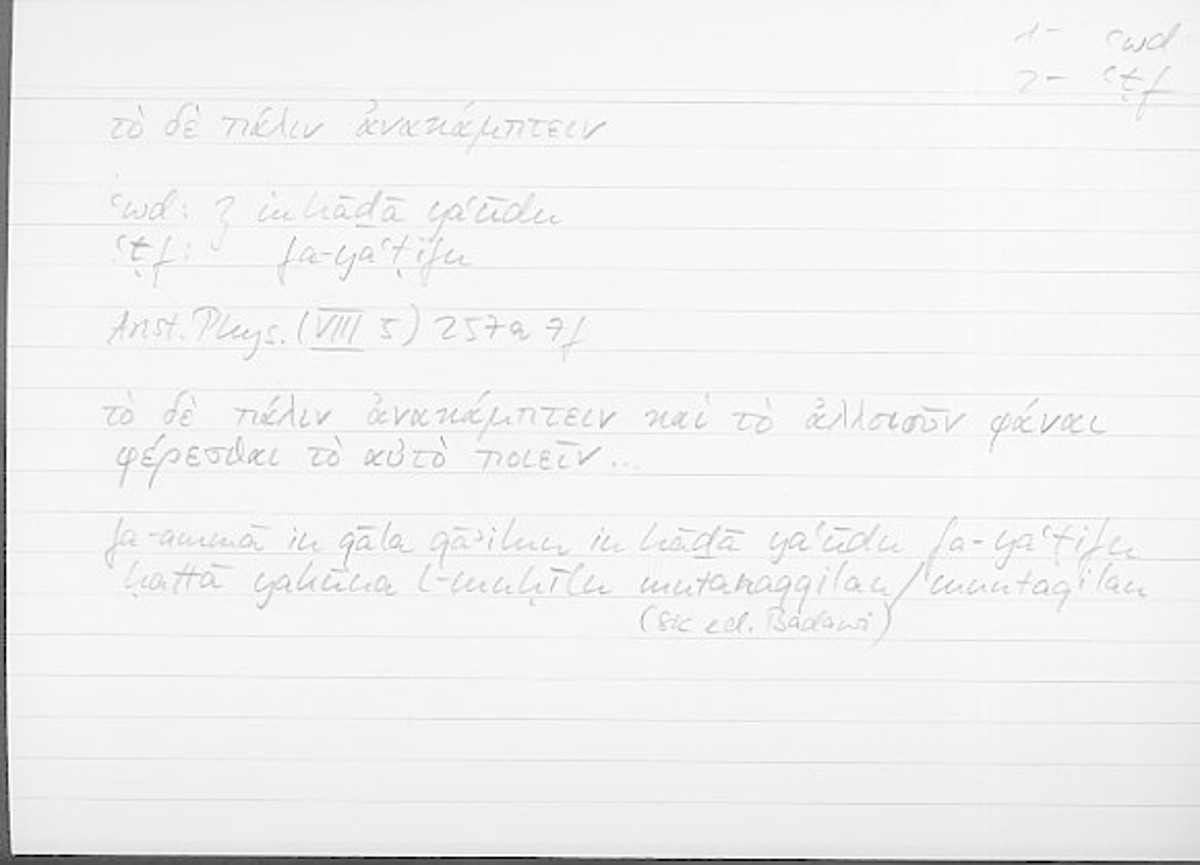 1- ʿwd
2- ʿṭf
τὸ δὲ πάλιν ἀνακάμπτειν
ʿwd: } in hāḏā yaʿūdu
ʿṭf: fa-yaʿṭifu
Arist. Phys. (VIII 5) 257a 7f
τὸ δὲ πάλιν ἀνακάμπτειν καὶ τὸ ἀλλοιοῦν φάναι
φέρεσθαι τὸ αὐτὸ ποιεῖν...
fa-ammā in qāla qāʾilun in hāḏā yaʿūdu fa-yaʿṭifu
ḥattā yakūna l-muḥīlu mutanaqqilan/muntaqilan
(sic ed. Badawi)